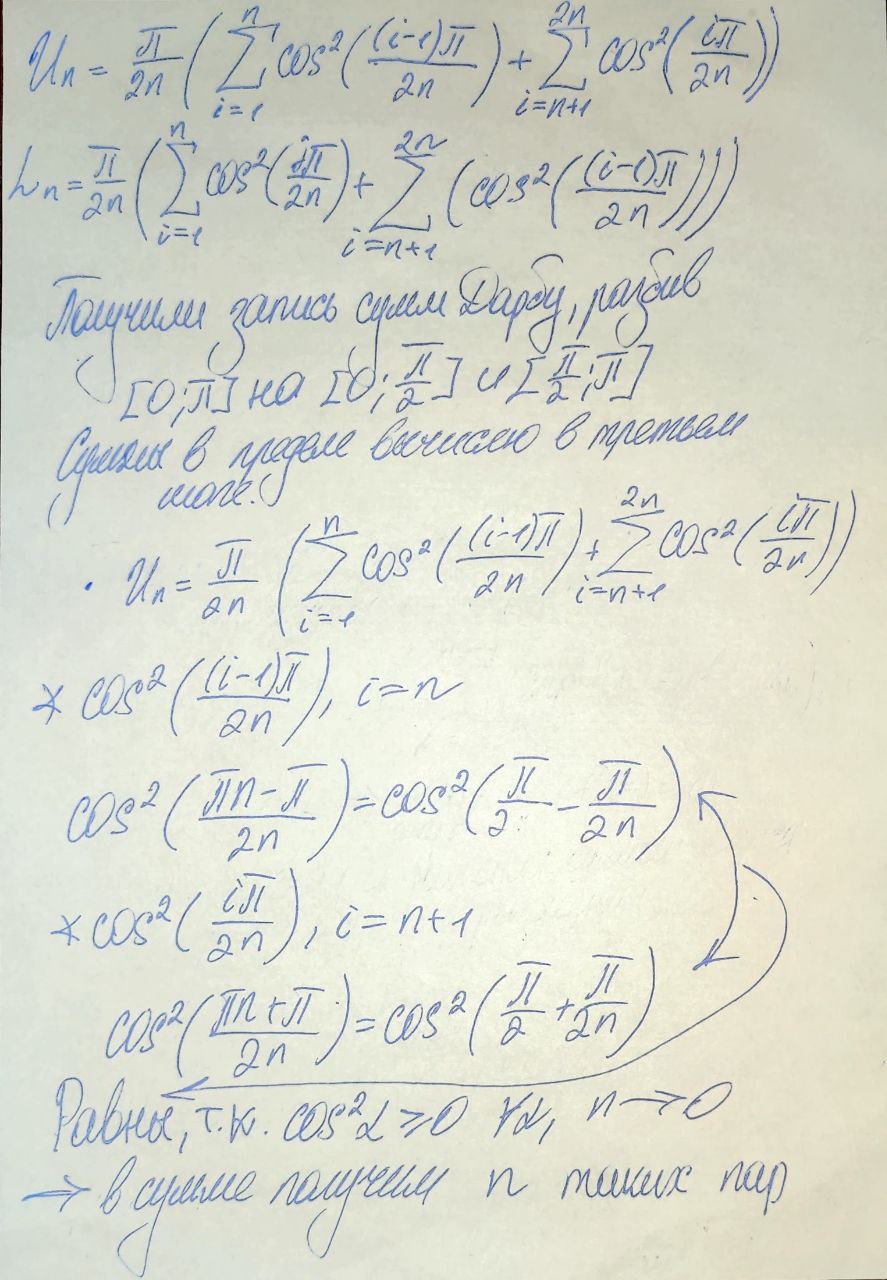 Uₙ = π/2n (∑_{i=1}^{n} cos²((i-1)π/2n) + ∑_{i=n+1}^{2n} cos²(iπ/2n))
Lₙ = π/2n (∑_{i=1}^{n} cos²(iπ/2n) + ∑_{i=n+1}^{2n} (cos²((i-1)π/2n)))
Получили запись сумм Дарбу, разбив
[0;π] на [0;π/2] и [π/2;π]
Суммы в пределе вычислю в третьем
шаге.
· Uₙ = π/2n (∑_{i=1}^{n} cos²((i-1)π/2n) + ∑_{i=n+1}^{2n} cos²(iπ/2n))
* cos²((i-1)π/2n), i=n
cos²(πn-π/2n) = cos²(π/2 - π/2n)
* cos²(iπ/2n), i=n+1
cos²(πn+π/2n) = cos²(π/2 + π/2n)
Равны, т.к. cos²α ≥ 0 ∀α, n→0
⇒ в сумме получим n таких пар